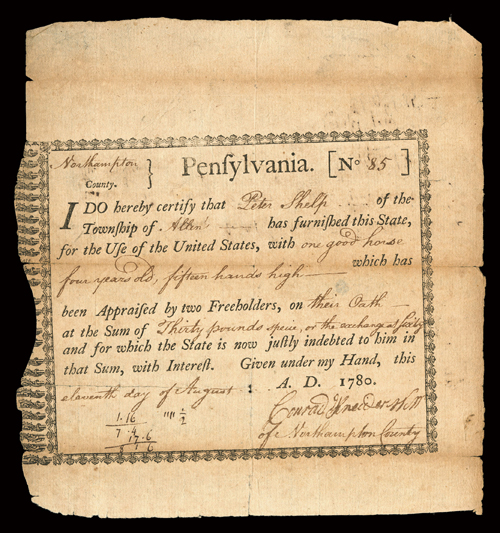 Northampton } Penſylvania. [No 85]
County.
I DO hereby certify that Peter Shelp of the
Township of Allen has furniſhed this State,
for the Uſe of the United States, with one good horse
four years old, fifteen hands high — which has
been Appraiſed by two Freeholders, on their Oath —
at the Sum of Thirty pounds specie, or the exchange at sixty
and for which the State is now juſtly indebted to him in
that Sum, with Intereſt. Given under my Hand, this
eleventh day of August A. D. 1780.
Conrad
of Northampton County
1.16